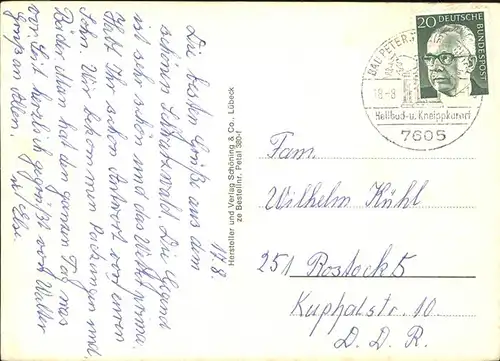 17.8.
Die besten Grüße aus dem
schönen Schwarzwald. Die Gegend
ist sehr schön und das Wetter prima.
Habt Ihr schon Antwort von euren
Sohn. Wir bekommen Packungen und
Bäder. Man hat den ganzen Tag was
vor. Seit herzlich gegrüßt von Walter
Gruß an Allen. u. Else.
Hersteller und Verlag Schöning & Co., Lübeck
ze Bestellnr. Petal 380-f
20 DEUTSCHE BUNDESPOST
BAD PETER
18.-8.
Heilbad-u. Kneippkurort
7605
Fam.
Wilhelm Kühl
251 Rostock 5
Kuphalstr. 10
D. D. R.